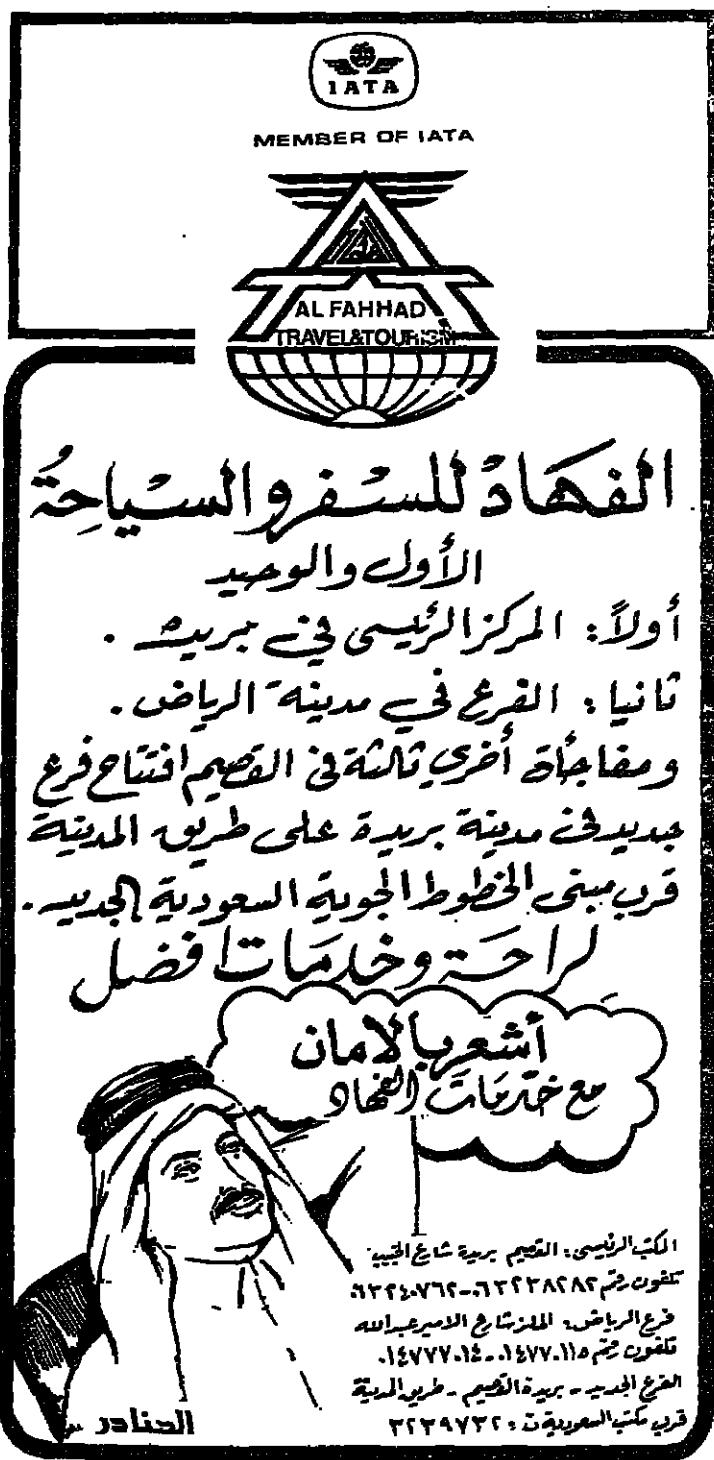 IATA
MEMBER OF IATA
AL FAHHAD
TRAVEL&TOURISM
الفهاد للسفر والسياحة
الأول والوحيد
أولاً: المركز الرئيسى في بريده .
ثانيا : الفرع في مدينة الرياض .
ومفاجأة أخرى ثالثة في القصيم افتتاح فرع
جديد في مدينة بريدة على طريق المدينة
قرب مبنى الخطوط الجوية السعودية الجديد .
لراحة وخدمات افضل
أشعر بالامان
مع خدمات الفهاد
المكتب الرئيسى : القصيم بريدة شارع الخبيب
تلفون رقم ٠٦٣٢٣٨٢٨٢ - ٠٦٣٢٤٠٧٦٢
فرع الرياض : الملز شارع الامير عبدالله
تلفون رقم ٠١٤٧٧٠١١٥ - ٠١٤٧٧٧٠١٤
الفرع الجديد - بريدة القصيم - طريق المدينة
قرب مكتب السعودية ت : ٣٢٣٩٧٣٢